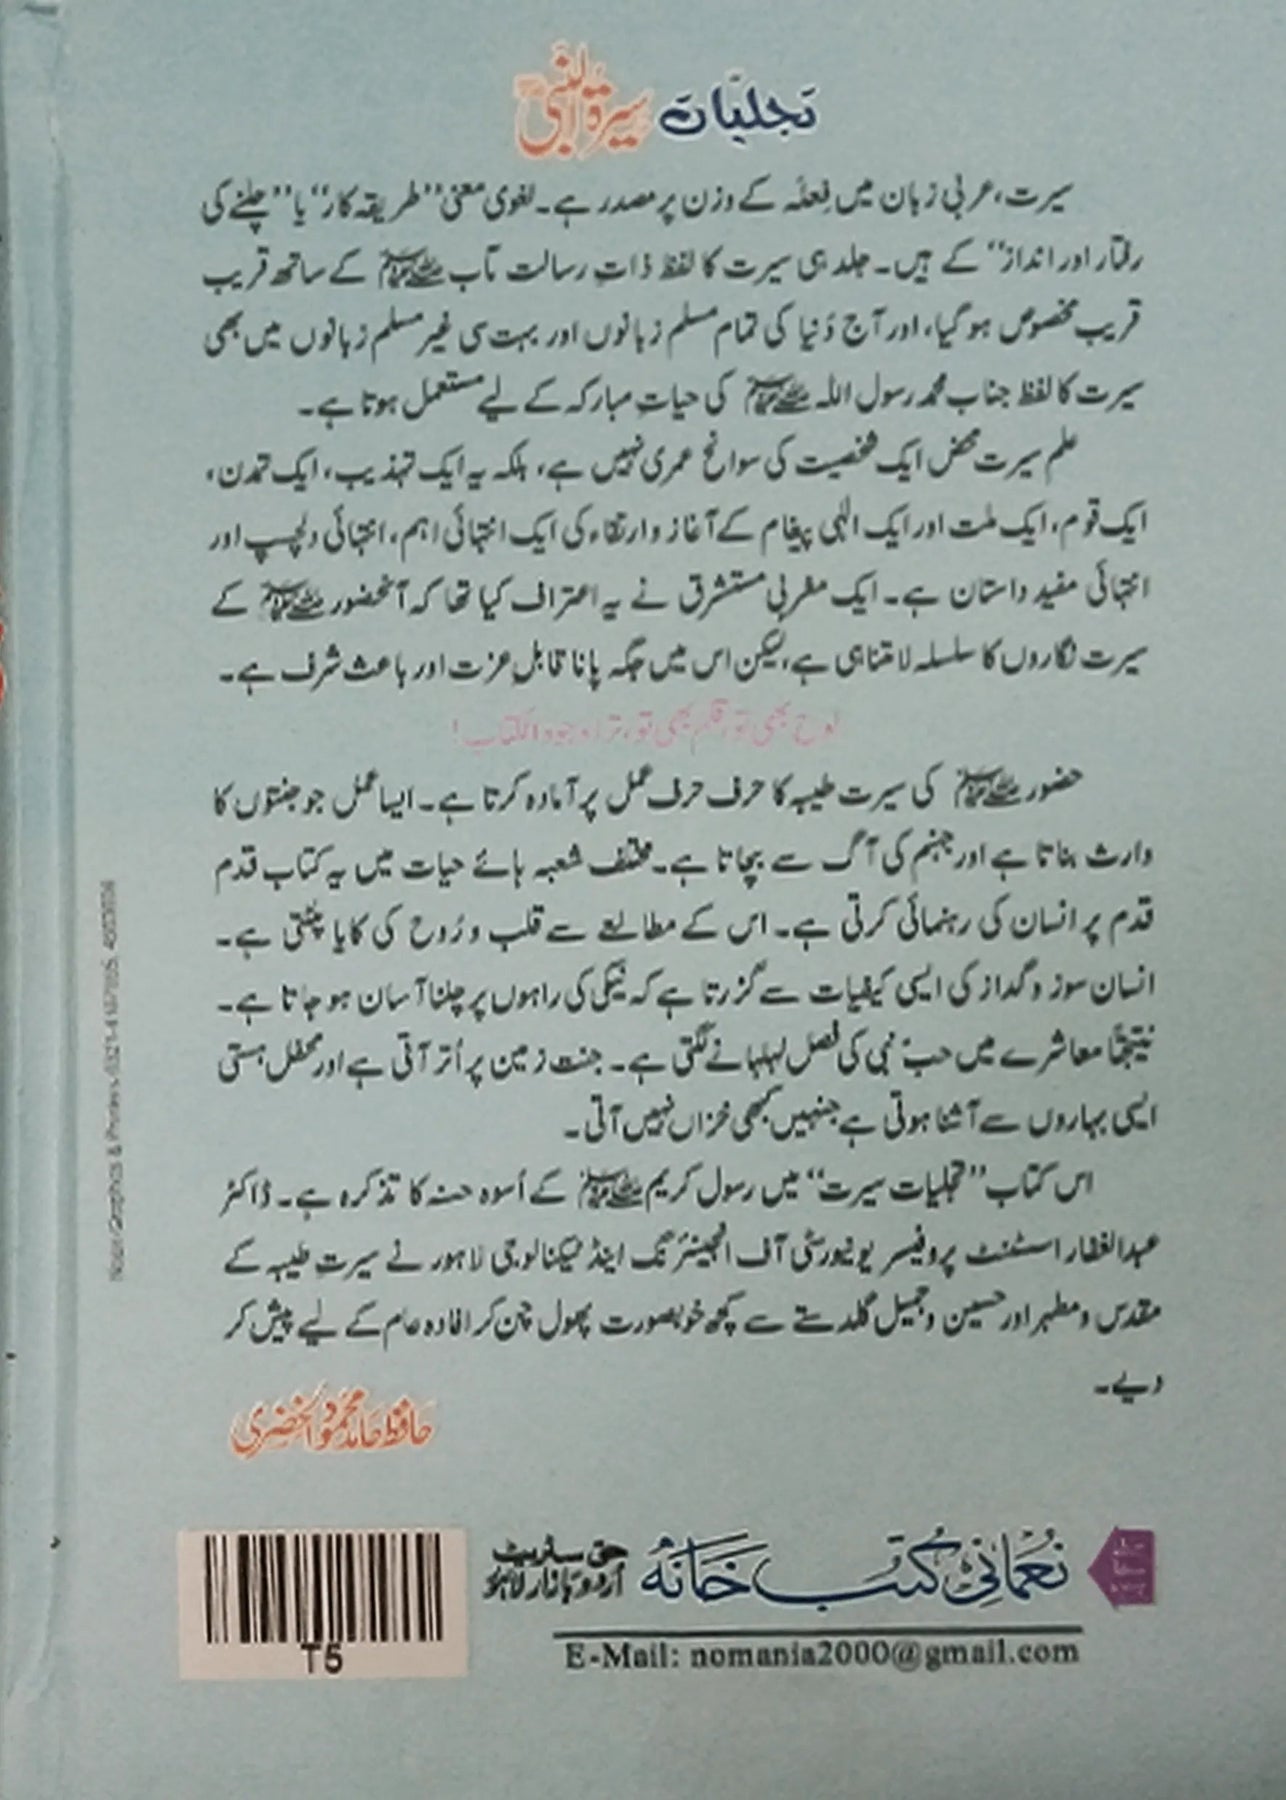 تجلیات سیرۃ النبی ﷺ
سیرت، عربی زبان میں فِعلَہ کے وزن پر مصدر ہے۔ لغوی معنی ”طریقہ کار“ یا ”چلنے کی
رفتار اور انداز“ کے ہیں۔ جلد ہی سیرت کا لفظ ذاتِ رسالت مآب ﷺ کے ساتھ قریب
قریب مخصوص ہوگیا، اور آج دُنیا کی تمام مسلم زبانوں اور بہت سی غیر مسلم زبانوں میں بھی
سیرت کا لفظ جناب محمد رسول اللہ ﷺ کی حیاتِ مبارکہ کے لیے مستعمل ہوتا ہے۔
علم سیرت محض ایک شخصیت کی سوانح عمری نہیں ہے، بلکہ یہ ایک تہذیب، ایک تمدن،
ایک قوم، ایک ملت اور ایک الٰہی پیغام کے آغاز و ارتقاء کی ایک انتہائی اہم، انتہائی دلچسپ اور
انتہائی مفید داستان ہے۔ ایک مغربی مستشرق نے یہ اعتراف کیا تھا کہ آنحضور ﷺ کے
سیرت نگاروں کا سلسلہ لامتناہی ہے، لیکن اس میں جگہ پانا قابلِ عزت اور باعث شرف ہے۔
لوح بھی تو، قلم بھی تو، ترا وجود الکتاب!
حضور ﷺ کی سیرت طیبہ کا حرف حرف عمل پر آمادہ کرتا ہے۔ ایسا عمل جو جنتوں کا
وارث بناتا ہے اور جہنم کی آگ سے بچاتا ہے۔ مختلف شعبہ ہائے حیات میں یہ کتاب قدم
قدم پر انسان کی رہنمائی کرتی ہے۔ اس کے مطالعے سے قلب و رُوح کی کایا پلٹتی ہے۔
انسان سوز و گداز کی ایسی کیفیات سے گزرتا ہے کہ نیکی کی راہوں پر چلنا آسان ہو جاتا ہے۔
نتیجتاً معاشرے میں حبّ نبی کی فصل لہلہانے لگتی ہے۔ جنت زمین پر اُتر آتی ہے اور محفل ہستی
ایسی بہاروں سے آشنا ہوتی ہے جنہیں کبھی خزاں نہیں آتی۔
اس کتاب ”تجلیات سیرت“ میں رسول کریم ﷺ کے اُسوہ حسنہ کا تذکرہ ہے۔ ڈاکٹر
عبدالغفار اسسٹنٹ پروفیسر یونیورسٹی آف انجینئرنگ اینڈ ٹیکنالوجی لاہور نے سیرتِ طیبہ کے
مقدس و مطہر اور حسین و جمیل گلدستے سے کچھ خوبصورت پھول چن کر افادہ عام کے لیے پیش کر
دیے۔
حافظ حامد محمود الخضری
نعمانی کتب خانہ
حق سٹریٹ
اردو بازار لاہور
E-Mail: nomania2000@gmail.com
T5